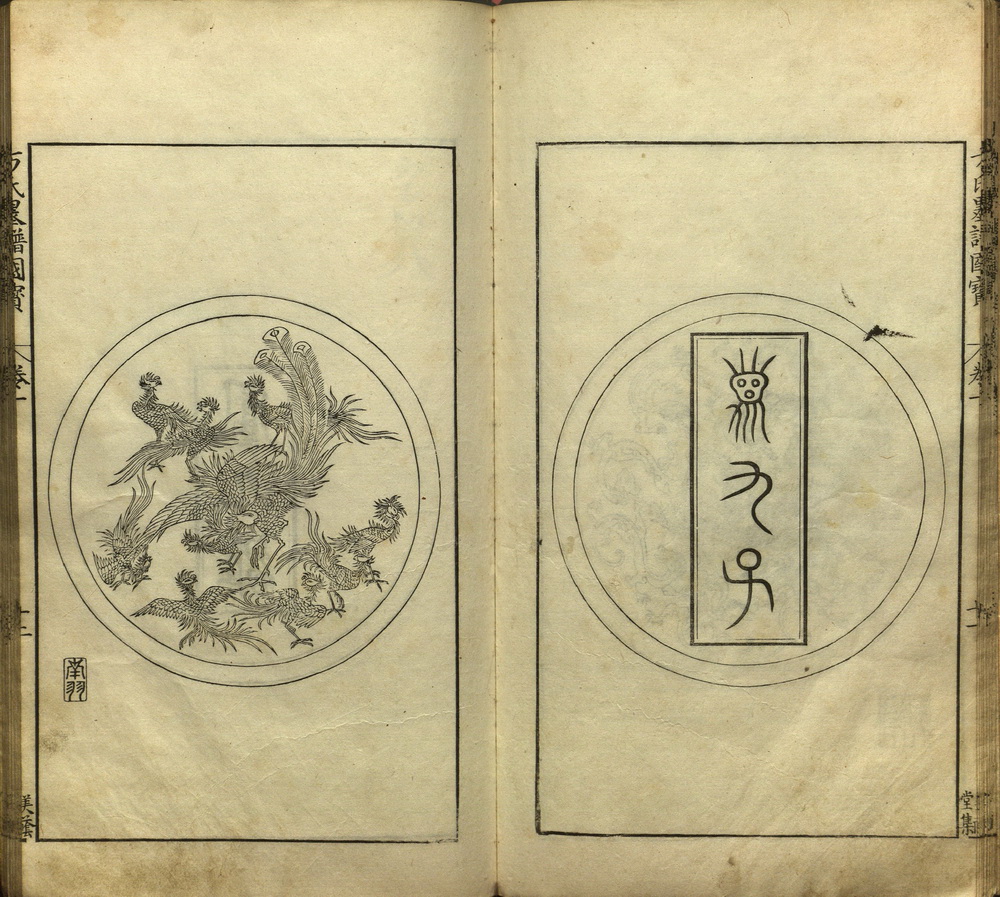 方氏墨譜國寶
卷一
十一
堂集
九子
方氏墨譜國寶
卷一
十二
美蔭
南羽